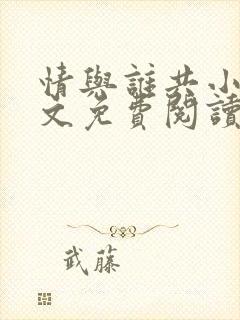 情與誰共小
文免費閱讀
武藤